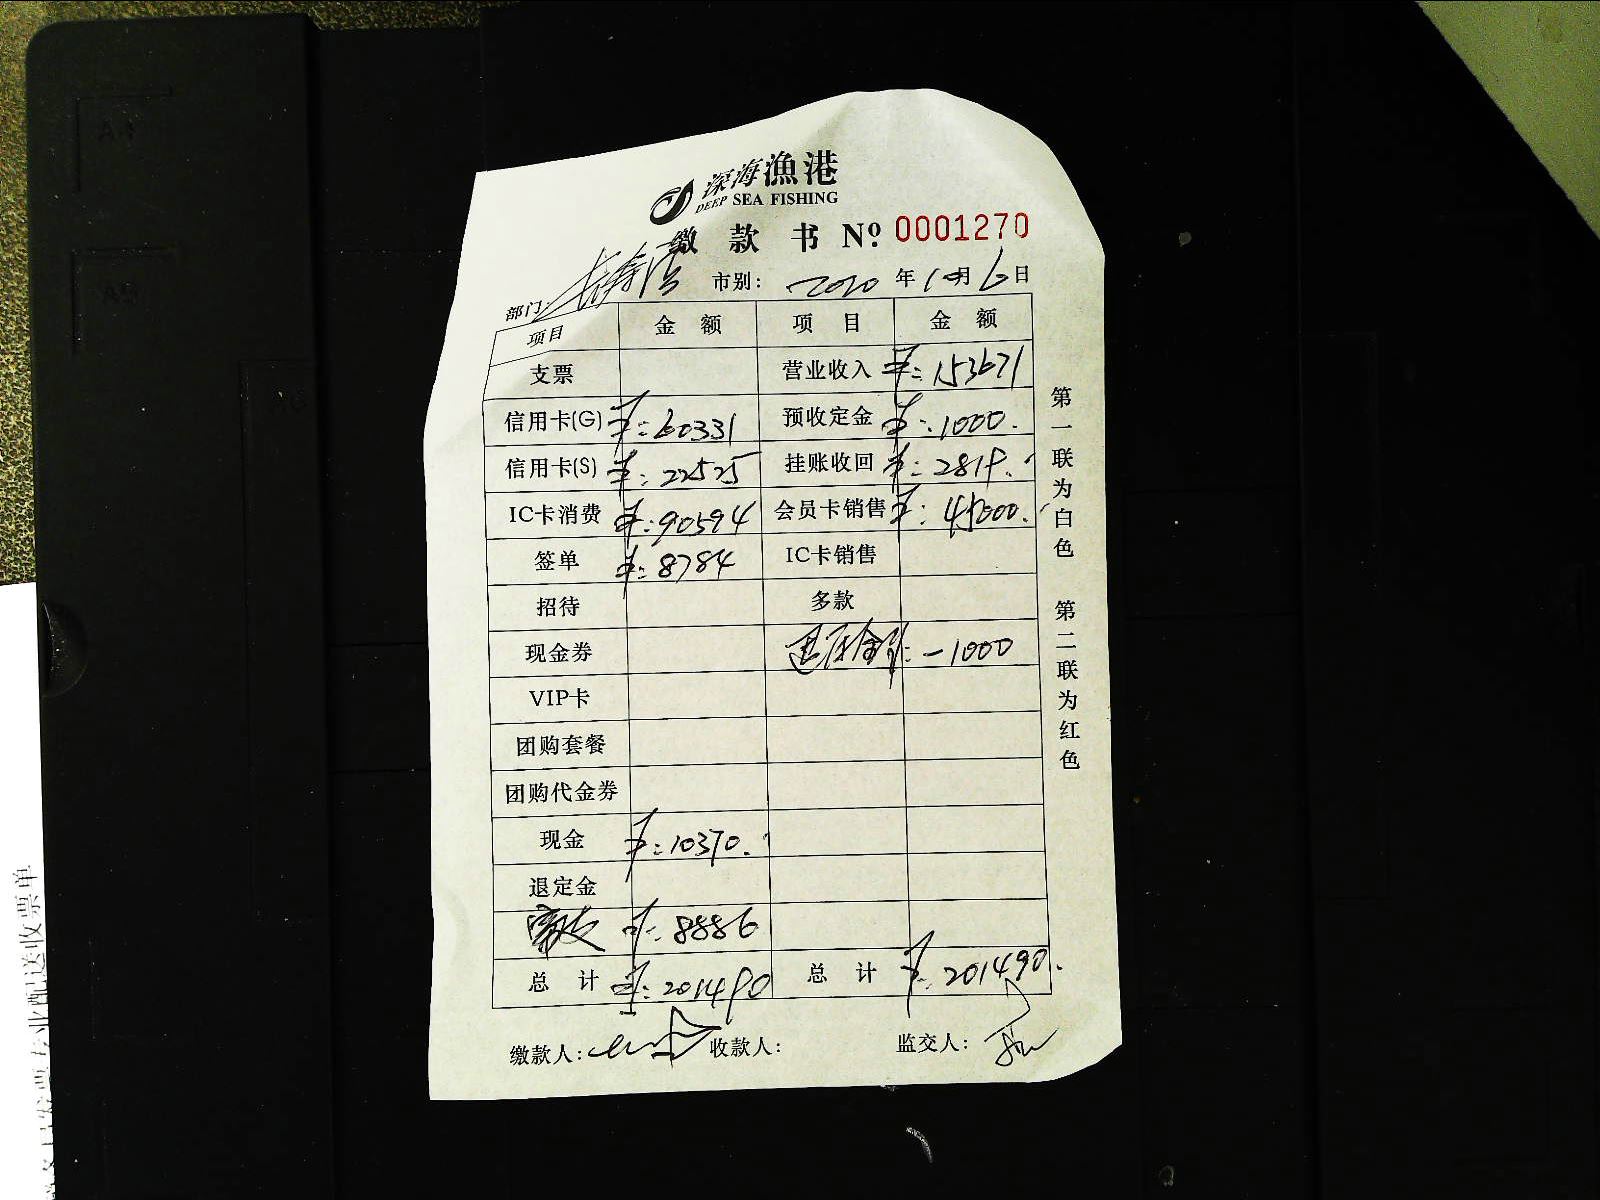 深海漁港
DEEP SEA FISHING
缴款书 Nº 0001270
部门: 市别: 2020年10月6日
项目 金额 项目 金额
支票 营业收入 ¥:153671
信用卡(G) ¥:60331 预收定金 ¥:1000.
信用卡(S) ¥:22525 挂账收回 ¥:2819.
IC卡消费 ¥:90594 会员卡销售 ¥:45000.
签单 ¥:8784 IC卡销售
招待 多款
现金券 -1000
VIP卡
团购套餐
团购代金券
现金 ¥:10370.
退定金
¥:8886
总计 ¥:201490 总计 ¥:201490.
缴款人: 收款人: 监交人:
第一联为白色 第二联为红色